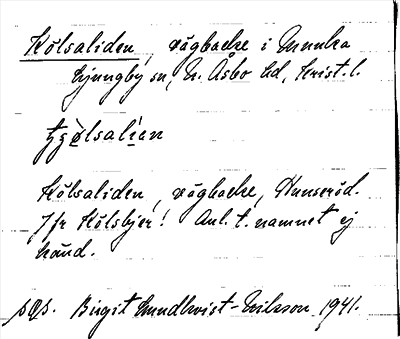 Kölsaliden, vägbacke i Munka
Ljungby sn, N. Åsbo hd, Krist. l.
tşølsalían
Kölsaliden, vägbacke, Hunseröd.
Jfr Kölsbjer! Anl. t. namnet ej
känd.
SOS. Birgit Lundkvist-Nilsson 1941.